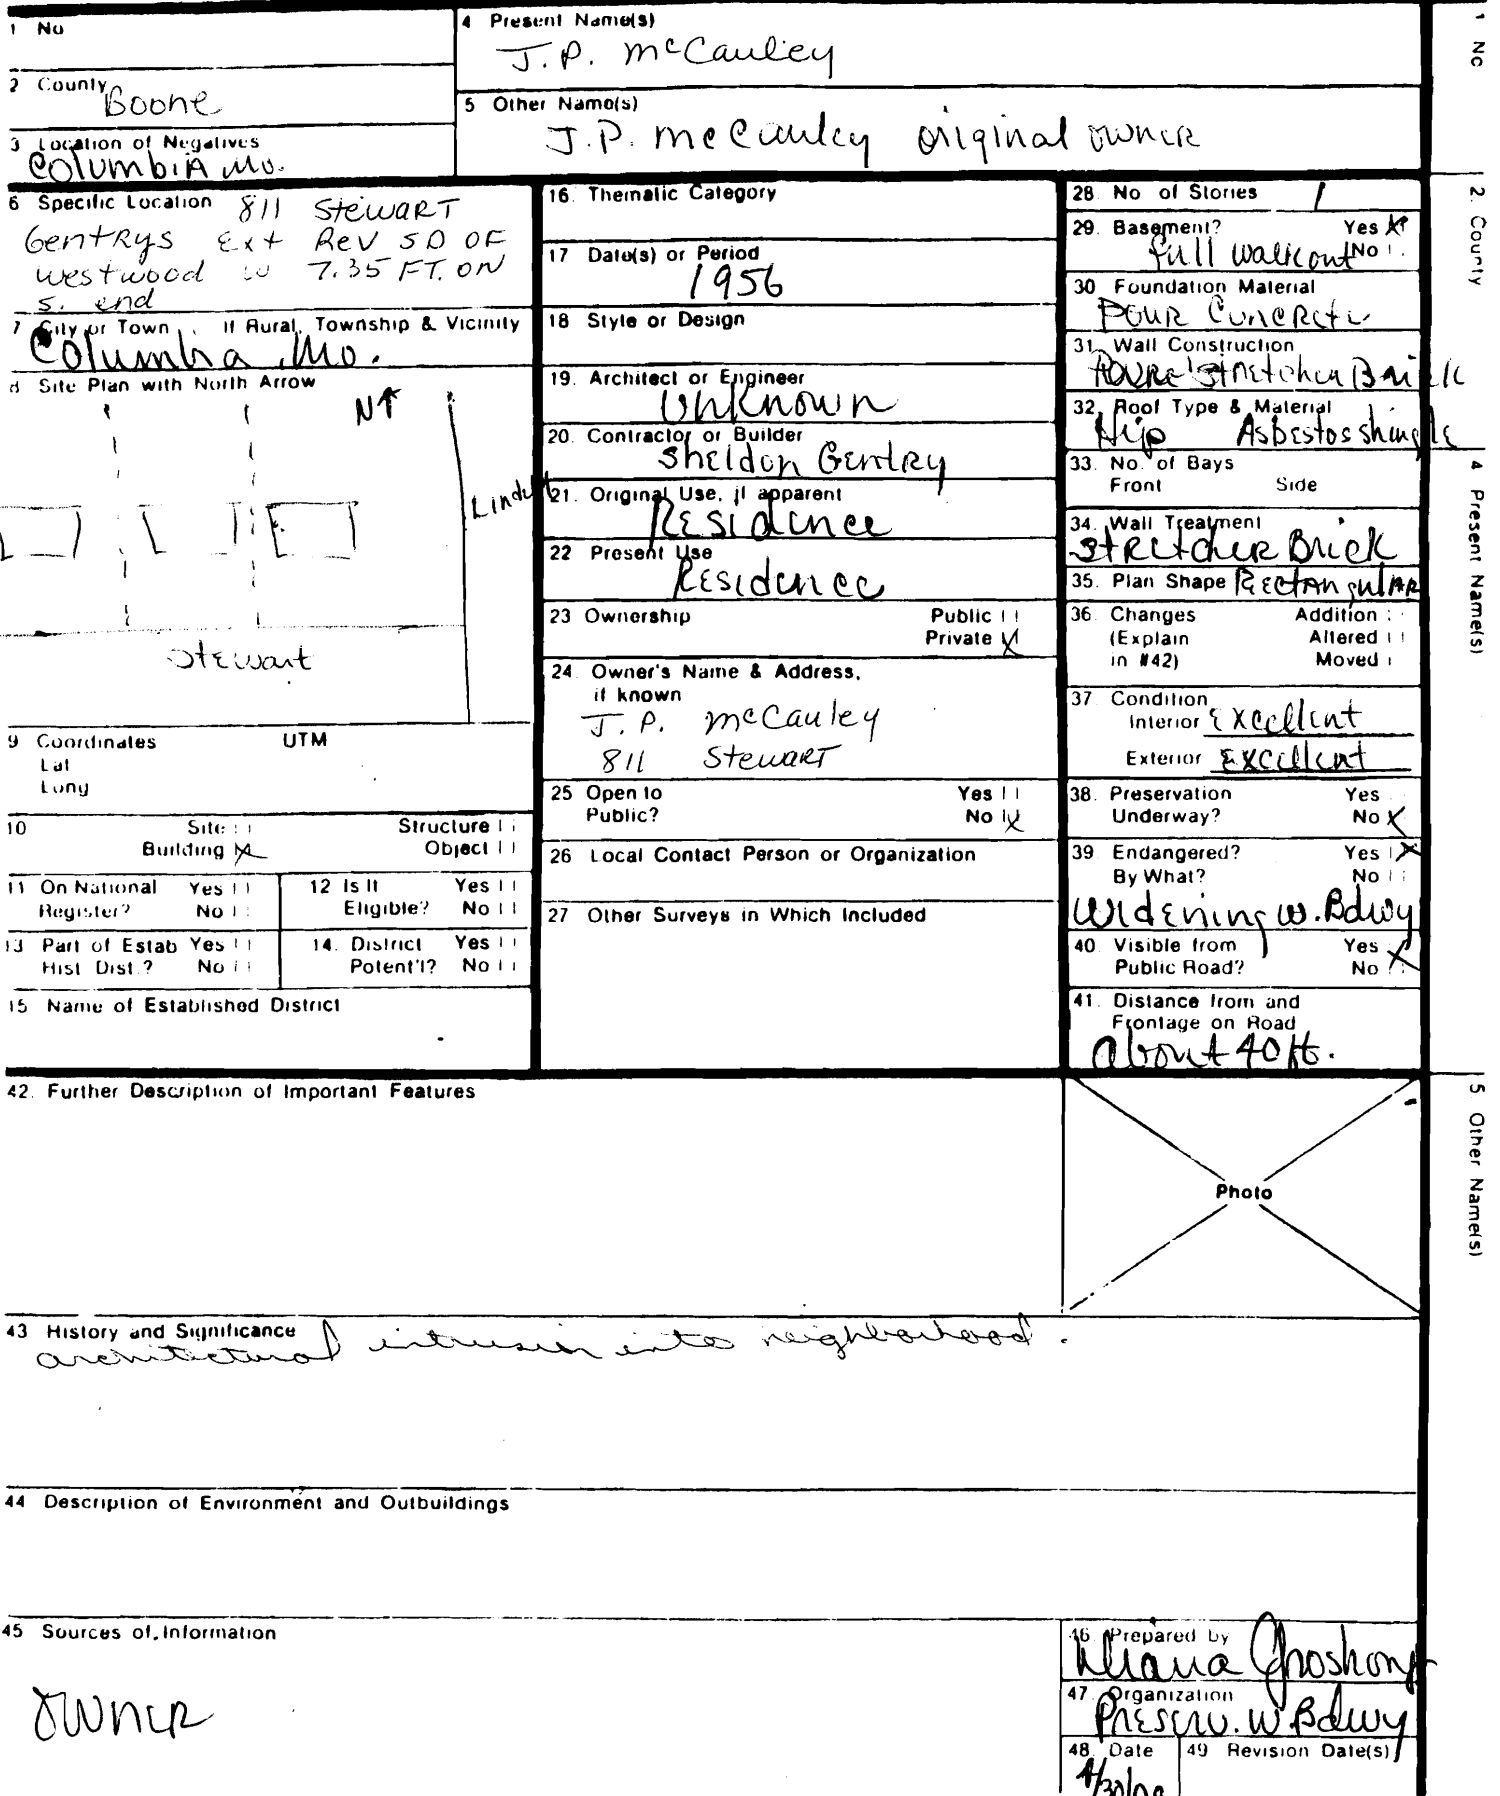 1 No
4 Present Name(s)
J.P. McCauley
2 County
Boone
5 Other Name(s)
J.P. McCauley original owner
3 Location of Negatives
Columbia Mo.
6 Specific Location 811 Stewart
Gentrys Ext Rev SD OF
Westwood W 7.35 FT. ON
S. end
7 City or Town If Rural, Township & Vicinity
Columbia, Mo.
8 Site Plan with North Arrow
N↑
Stewart
9 Coordinates UTM
Lat
Long
10 Site
Structure
Building X
Object
11 On National Register? Yes No
12 Is It Eligible? Yes No
13 Part of Estab Hist Dist.? Yes No
14. District Potent'l? Yes No
15 Name of Established District
16. Thematic Category
17 Date(s) or Period
1956
18 Style or Design
19. Architect or Engineer
Unknown
20. Contractor or Builder
Sheldon Gentry
21. Original Use, if apparent
Residence
22 Present Use
Residence
23 Ownership Public
Private X
24 Owner's Name & Address,
if known
J. P. McCauley
811 Stewart
25 Open to Yes
Public? No X
26 Local Contact Person or Organization
27 Other Surveys in Which Included
28. No of Stories 1
29. Basement? Yes X
full walkout No
30 Foundation Material
Pour Concrete
31. Wall Construction
Stretcher Brick
32. Roof Type & Material
Hip Asbestos shingle
33. No. of Bays
Front Side
34. Wall Treatment
Stretcher Brick
35. Plan Shape Rectangular
36. Changes Addition
(Explain Altered
in #42) Moved
37. Condition
Interior Excellent
Exterior Excellent
38. Preservation Yes
Underway? No X
39. Endangered? Yes X
By What? No
Widening W. Bdwy
40. Visible from Yes X
Public Road? No
41. Distance from and
Frontage on Road
about 40 ft.
42. Further Description of Important Features
Photo
43 History and Significance
architectural intrusion into neighborhood.
44 Description of Environment and Outbuildings
45 Sources of Information
Owner
46. Prepared by
47. Organization
Preserv. W. Bdwy
48. Date
49 Revision Date(s)
2. County
4 Present Name(s)
5 Other Name(s)